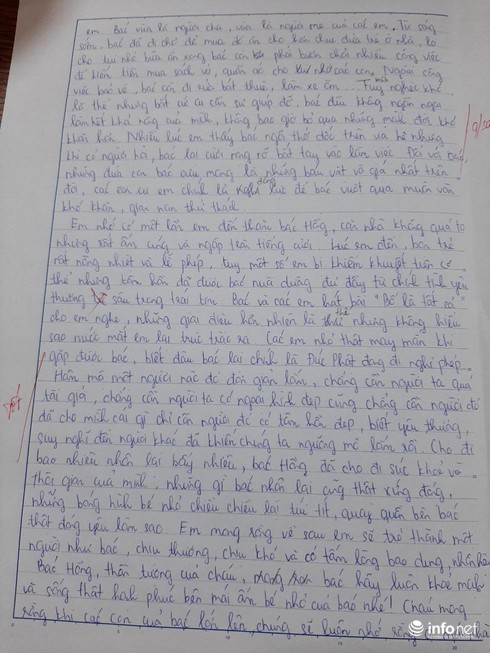 em. Bác vừa là người cha, vừa là người mẹ của các em. Từ sáng
sớm, bác đã đi chợ để mua đồ ăn cho hơn chục đứa trẻ ở nhà, lo
cho tụi nhỏ bữa ăn xong bác còn phải bươn chải nhiều công việc
để kiếm tiền mua sách vở, quần áo cho các con. Ngoài công
việc bảo vệ, bác còn đi sửa bát thuê, làm xe ôm... Tuy nghèo khó
là thế nhưng bất cứ ai cần sự giúp đỡ, bác đều không ngần ngại
làm hết khả năng của mình, không bao giờ bỏ qua những mảnh đời khó
khăn hơn. Nhiều lúc em thấy bác ngồi thở dốc trên vỉa hè nhưng
khi có người hỏi, bác lại cười rạng rỡ bắt tay vào làm việc. Đối với bác,
những đứa con bác cưu mang là những báu vật vô giá nhất trên
đời, các em ấy em chính là động lực để bác vượt qua muôn vàn
khó khăn, gian nan thử thách.
Em nhớ có một lần em đến thăm bác Hồng, căn nhà không quá to
nhưng rất ấm cúng và ngập tràn tiếng cười. Lúc em đến, bọn trẻ
rất nồng nhiệt và lễ phép, tuy một số em bị khiếm khuyết trên cơ
thể nhưng tâm hồn đã được bác nuôi dưỡng đủ đầy từ chính tình yêu
thương sâu trong trái tim. Bác và các em hát bài "Bố là tất cả"
cho em nghe, những giai điệu hồn nhiên là thế nhưng không hiểu
sao nước mắt em lại trực trào ra. Các em nhỏ thật may mắn khi
gặp được bác, biết đâu bác lại chính là Đức Phật đang đi nghỉ phép.
Hâm mộ một người nào đó đơn giản lắm, chẳng cần người ta quá
tài giỏi, chẳng cần người ta có ngoại hình đẹp cũng chẳng cần người đó
đã cho mình cái gì chỉ cần người đó có tâm hồn đẹp, biết yêu thương,
suy nghĩ đến người khác đã khiến chúng ta ngưỡng mộ lắm rồi. Cho đi
bao nhiêu nhận lại bấy nhiêu, bác Hồng đã cho đi sức khoẻ và
thời gian của mình, nhưng gì bác nhận lại cũng thật xứng đáng,
những bóng hình bé nhỏ chiều chiều lại tíu tít, quây quần bên bác
thật đáng yêu làm sao. Em mong rằng về sau em sẽ trở thành một
người như bác, chịu thương, chịu khó và có tấm lòng bao dung, nhân hậu.
Bác Hồng, thần tượng của cháu, mong bác hãy luôn khoẻ mạnh
và sống thật hạnh phúc bên mái ấm bé nhỏ của bác nhé! Cháu mong
rằng khi các con của bác lớn lên, chúng sẽ luôn nhớ rằng
infonet